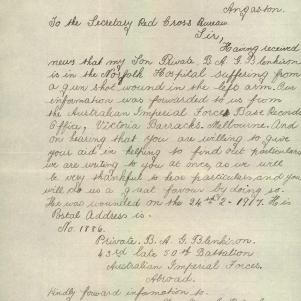 Angaston.
To the Secretary Red Cross Bureau
Sir,
Having received
news that my Son Private B. A. G. Blenkiron
is in the Norfolk Hospital suffering from
a gun shot wound in the left arm. Our
information was forwarded to us from
the Australian Imperial Force Base Records
Office, Victoria Barracks. Melbourne. And
on hearing that you are willing to give
your aid in helping to find out particulars
we are writing to you at once, as we will
be very thankful to hear particulars, and you
will do us a great favour by doing so.
He was wounded on the 24th 2 - 1917. His
Postal Address is.
No. 1886.
Private. B. A. G. Blenkiron.
43rd late 50th Battalion
Australian Imperial Forces.
Abroad.
Kindly forward information to